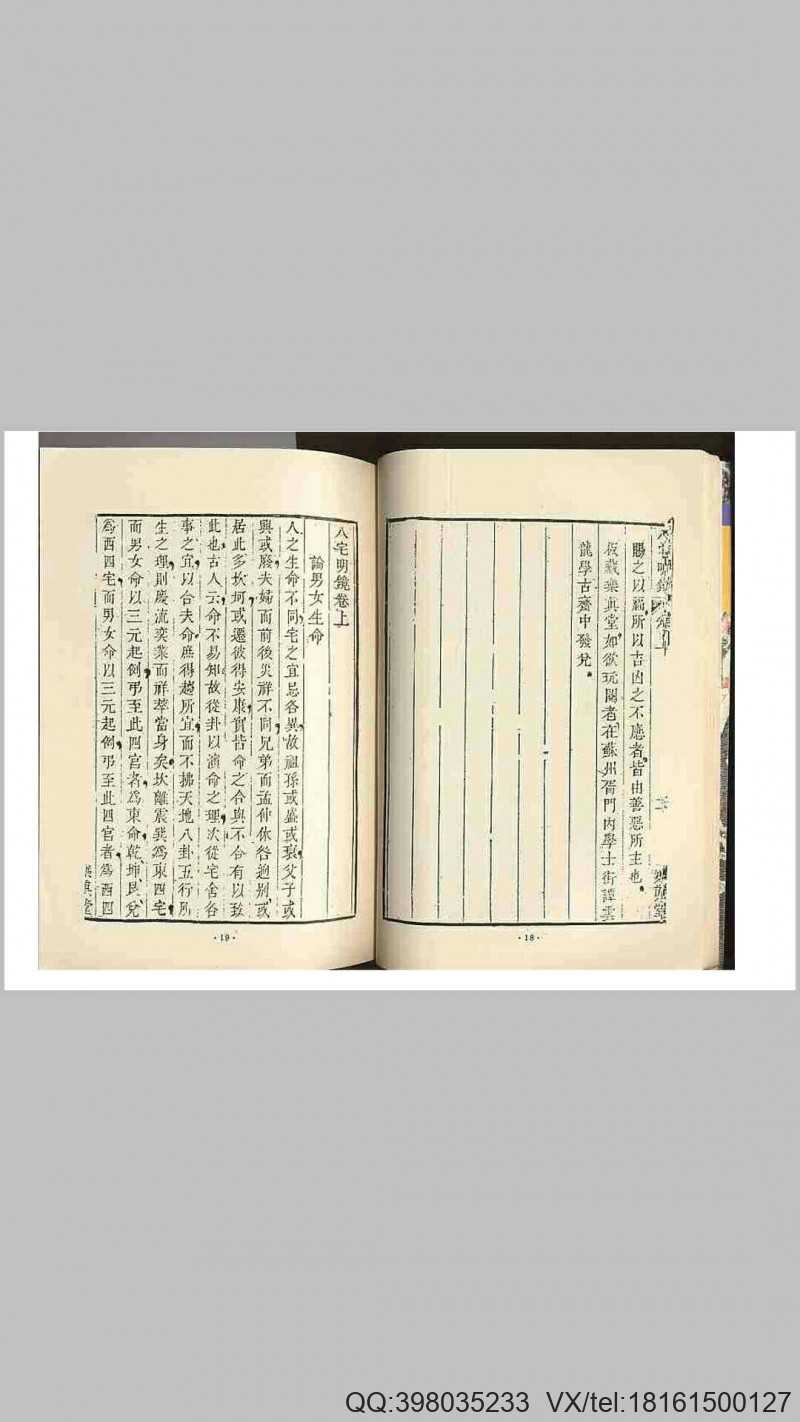 賜之以福所以吉凶之不應者皆由善惡所主也
板藏樂眞堂如欲玩閱者在蘇州胥門內學士街譚雲
龍學古齋中發兌。
·18·
八宅明鏡卷上
論男女生命
人之生命不同宅之宜忌各異故祖孫或盛或衰父子或
興或廢夫婦而前後災祥不同兄弟而孟仲休咎逈別或
居此多坎坷或遷彼得安康實皆命之合與不合有以致
此也古人云命不易知故從卦以演命之理次從宅舍各
事之宜以合夫命庶得趨所宜而不拂天地八卦五行所
生之理則慶流奕葉而祥萃當身矣坎離震巽爲東四宅
而男女命以三元起例弔至此四宫者爲東命乾坤艮兌
爲西四宅而男女命以三元起例弔至此四宫者爲西四
樂眞堂
·19·
QQ:398035233 VX/tel:18161500127